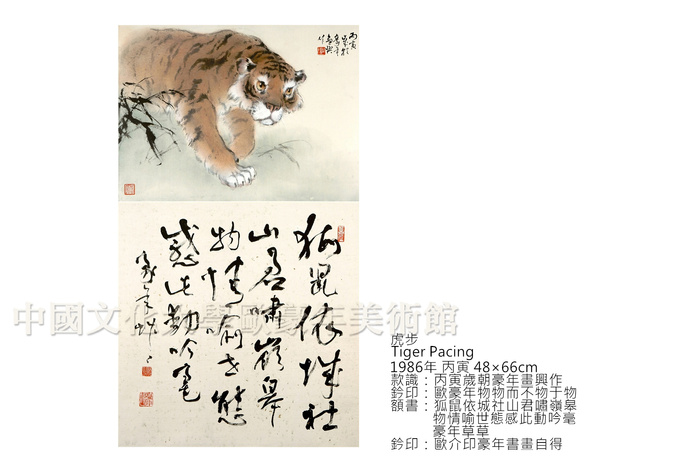 丙寅
歲朝
豪年
畫興
作
狐鼠依城社
山君嘯嶺皋
物情喻世態
感此動吟毫
豪年草草
中國文化大學歐豪年美術館
虎步
Tiger Pacing
1986年 丙寅 48×66cm
款識：丙寅歲朝豪年畫興作
鈐印：歐豪年物物而不物于物
額書：狐鼠依城社山君嘯嶺皋
物情喻世態感此動吟毫
豪年草草
鈐印：歐介印豪年書畫自得